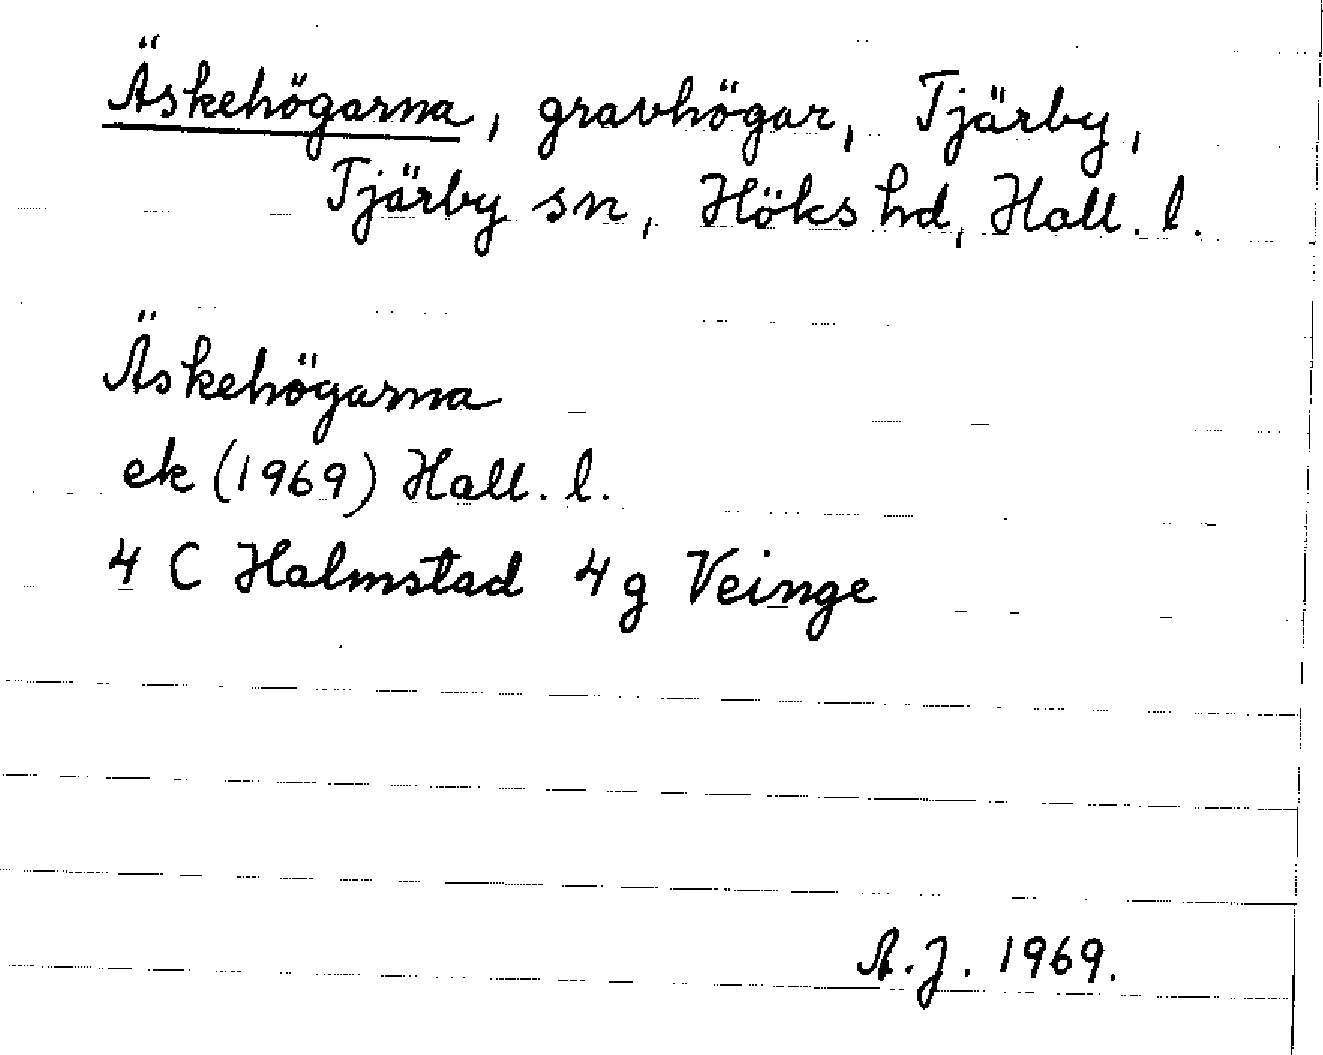 Äskehögarna, gravhögar, Tjärby,
Tjärby sn, Höks hd, Hall. l.
Äskehögarna
ek (1969) Hall. l.
4 C Halmstad 4 g Veinge
A.J. 1969.